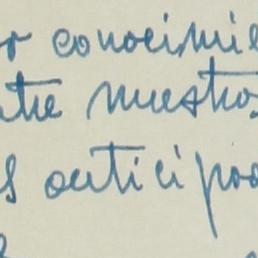 r conocimie
tre nuestro
s anticipa